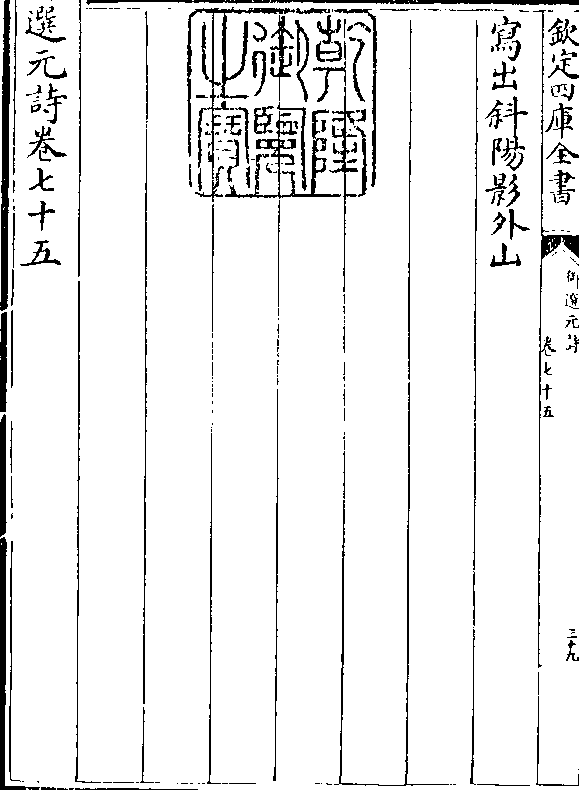 欽定四庫全書
御選元詩
卷七十五
三十九
寫出斜陽影外山
乾隆御覽之寶
選元詩卷七十五